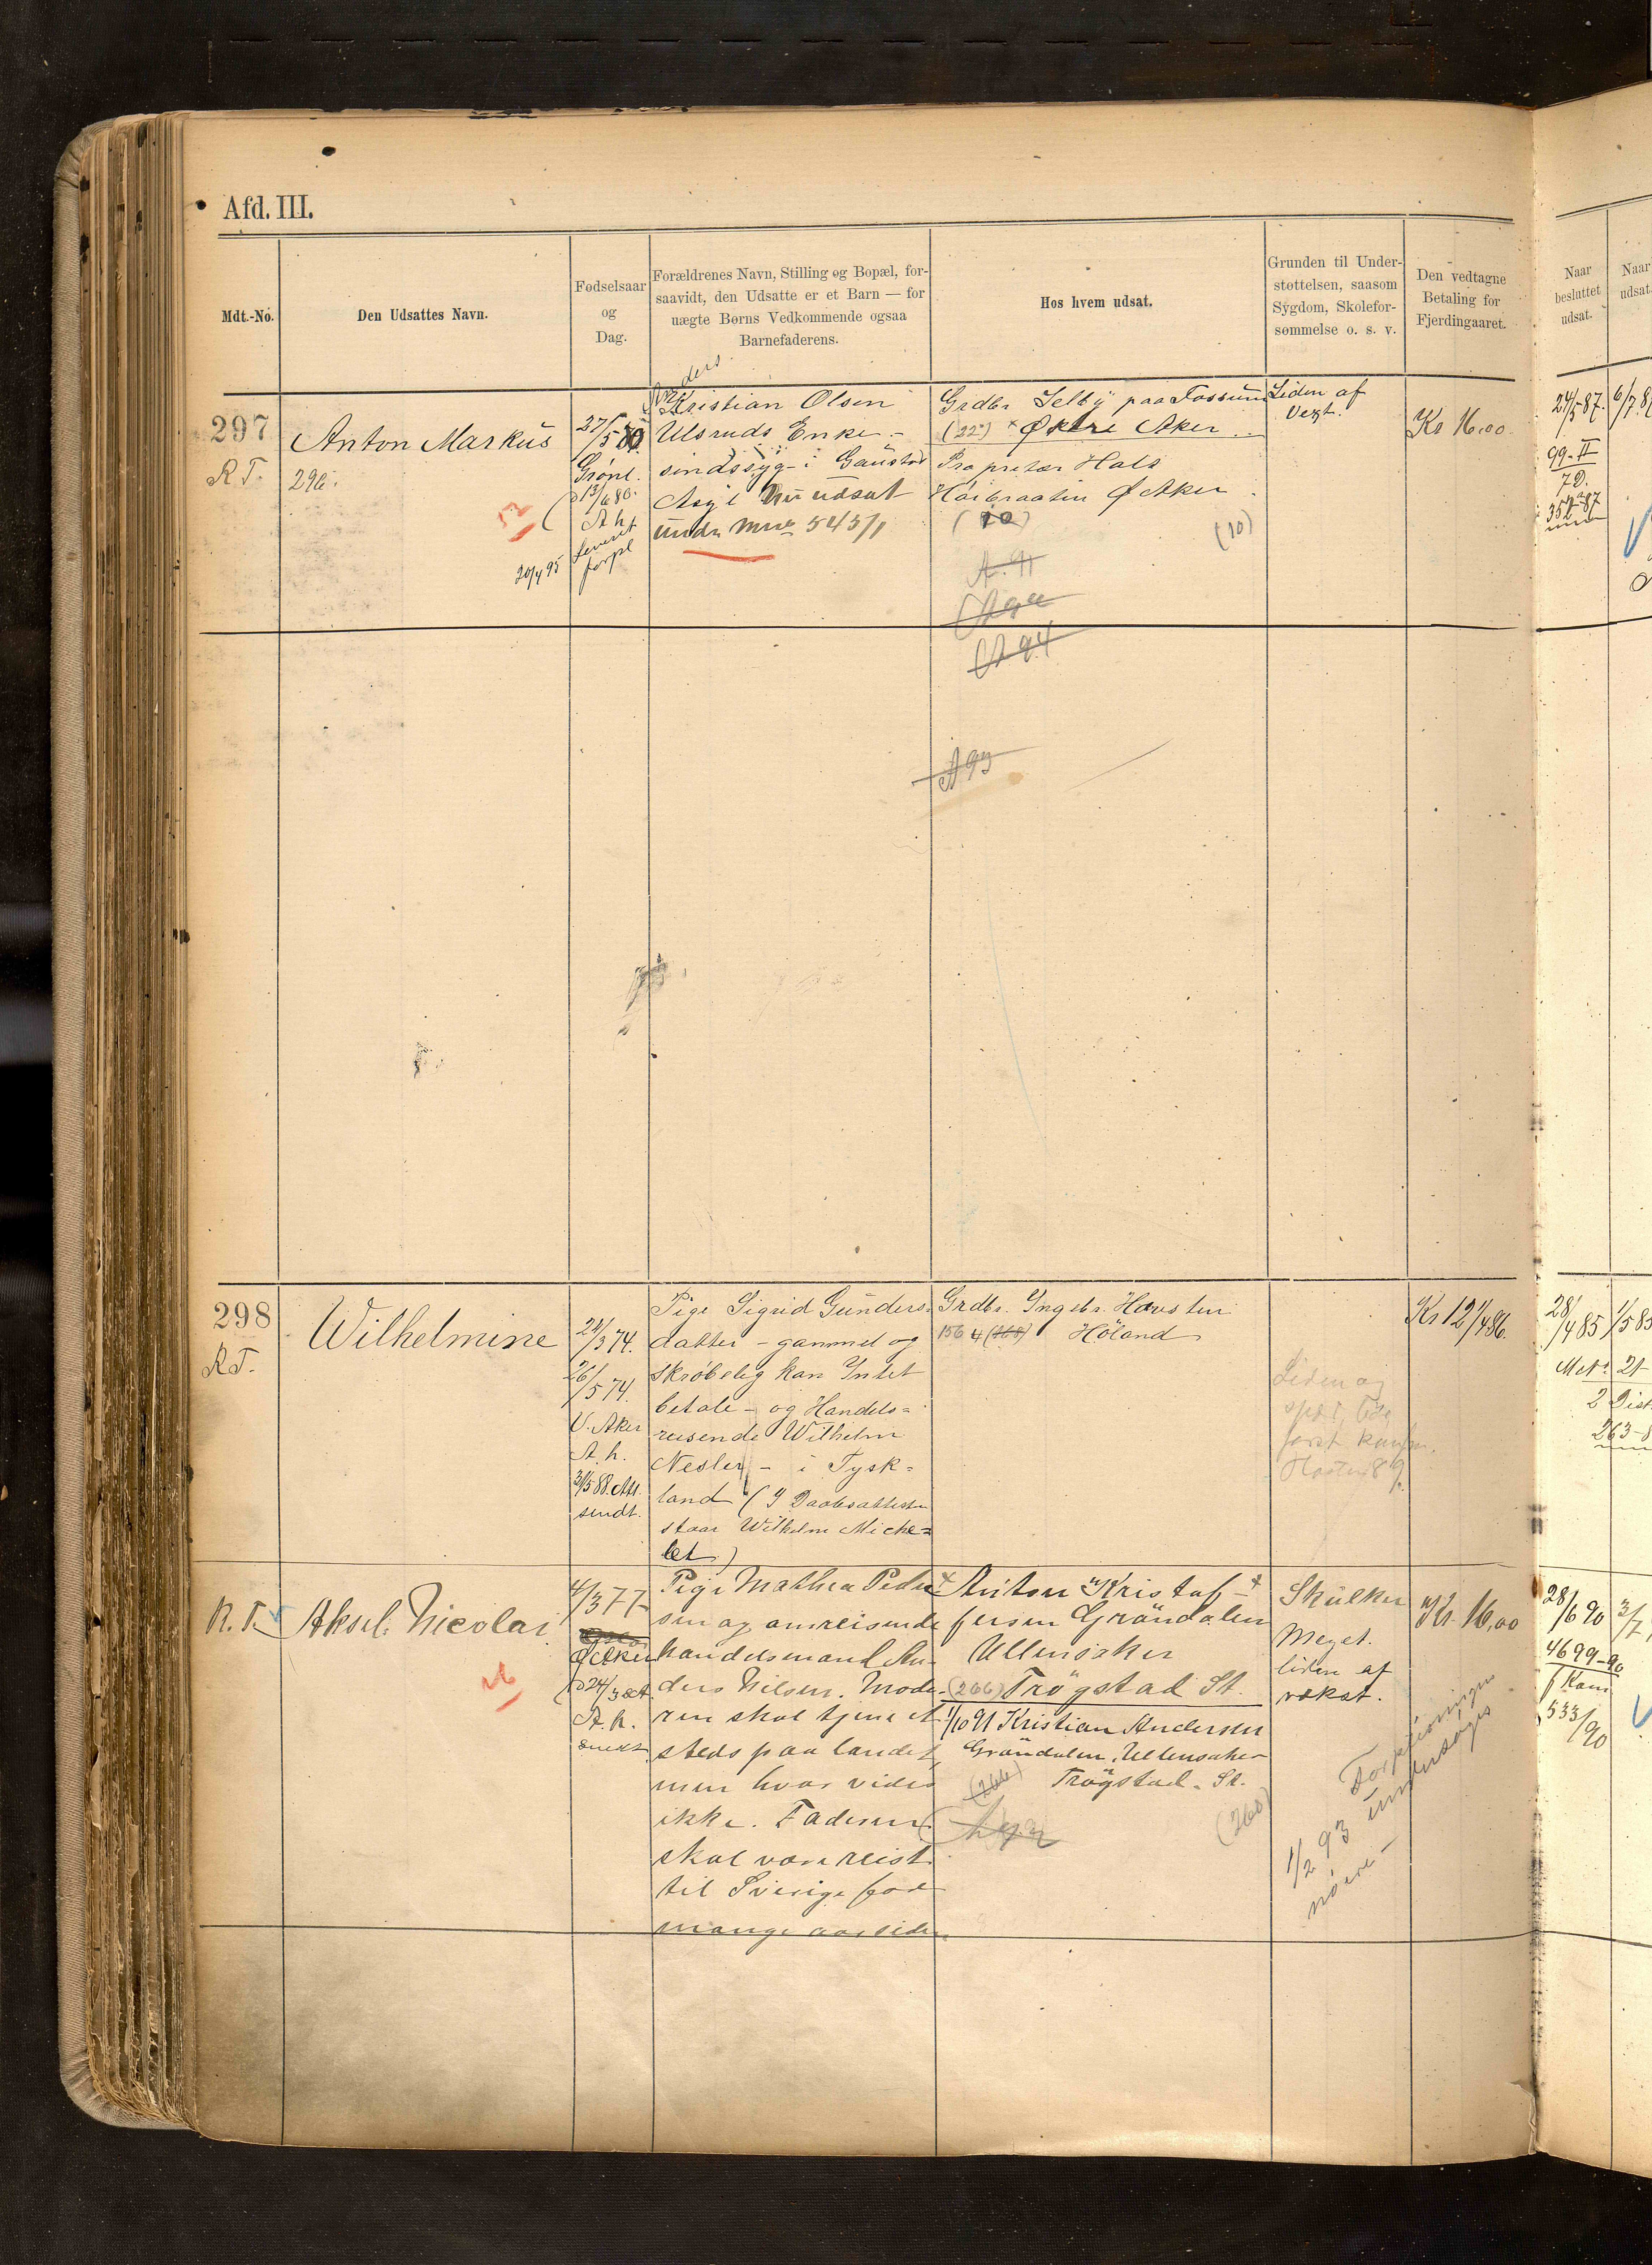 Afd. III.
Mdt.-No.
Den Udsattes Navn.
Fødselsaar
og
Dag.
Forældrenes Navn, Stilling og Bopæl, for-
saavidt, den Udsatte er et Barn — for
uægte Børns Vedkommende ogsaa
Barnefaderens.
Hos hvem udsat.
Grunden til Under-
støttelsen, saasom
Sygdom, Skolefor-
sømmelse o. s. v.
Den vedtagne
Betaling for
Fjerdingaaret.
Naar
besluttet
udsat.
Naar
udsat.
297
R.T.
Anton Markus
296.
27/5 80
Grønl.
13/6 80.
A.h.
Leveret
forpl
20/4 95
Anders
Kristian Olsen
Ulsruds Enke –
sindssyg – i Gaustad
Asyl nu udsat
under Mno 543/1
Grdbr Selby paa Fossum
(22) × Østre Aker
Proprietær Hals
Høibraaten Ø Aker
(20)
(10)
A. 91
A 94
A 93
Liden af
Vext.
Kr 16,00
24/5 87.
6/7 8
99-II
7D.
352-87
298
R.T.
Wilhelmine
24/3 74.
26/5 74.
V. Aker
A. h.
3/5 88. Att.
sendt.
Pige Sigrid Gunders-
datter – gammel og
skrøbelig kan Intet
betale – og Handels=
reisende Wilhelm
Nesler – i Tysk=
land (I Daabsattesten
staar Wilhelm Miche=
let)
Grdbr. Ingebr. Housten
156 4 (168) Høland
Liden og
Høsten 89.
Kr 12 1/4 86.
28/4 85
1/5 85
2 Dist.
263-8
R. T.
Aksel Nicolai
4/3 77
Ø Aker
24/3
A. h.
sendt
Pige Mathea Peder
sen og omreisende
handelsmand An-
ders Nilsen. Mode-
ren skal tjene et
steds paa landet,
men hvor vides
ikke. Faderen
skal være reist
til Sverige for
mange aar siden
× Anton Kristof- ×
fersen Grøndalen
Ullensaker
(266) Trøgstad St.
1/10 91 Kristian Andersen
Grøndalen, Ullensaker
(266) Trøgstad. St.
(260)
Skulker
Meget
liden af
vekst.
Forpleiningen
1/2 93 undersøges
nøiere –
Kr. 16,00
28/6 90
3/7
4699-90
f Kom
533/90